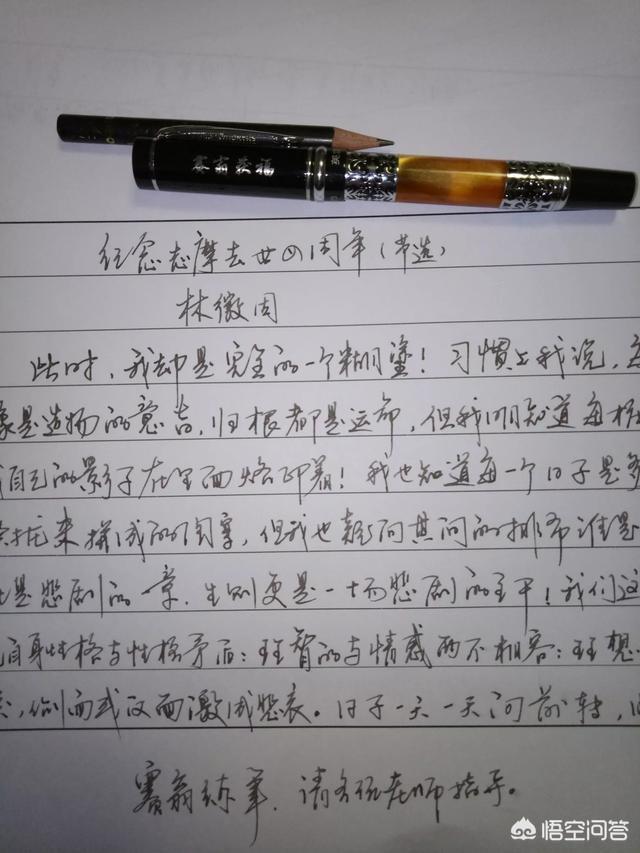 纪念志摩去世四周年(节选)
林徽因
此时,我却是完全的一个糊涂!习惯上我说,每
像是造物的意旨,归根都是运命,但我明知道每桩
自己的影子在里面烙印着!我也知道每一个日子是多
拢来拼成的图案,但我也疑问其间的排布谁是
是悲剧的一章,生则更是一场悲剧的主干!我们这
自身性格与性格矛盾:理智的与情感两不相容:理想
,侧面或反面激成悲哀。日子一天一天向前转,
塞翁练笔,请各位老师指导。
悟空问答